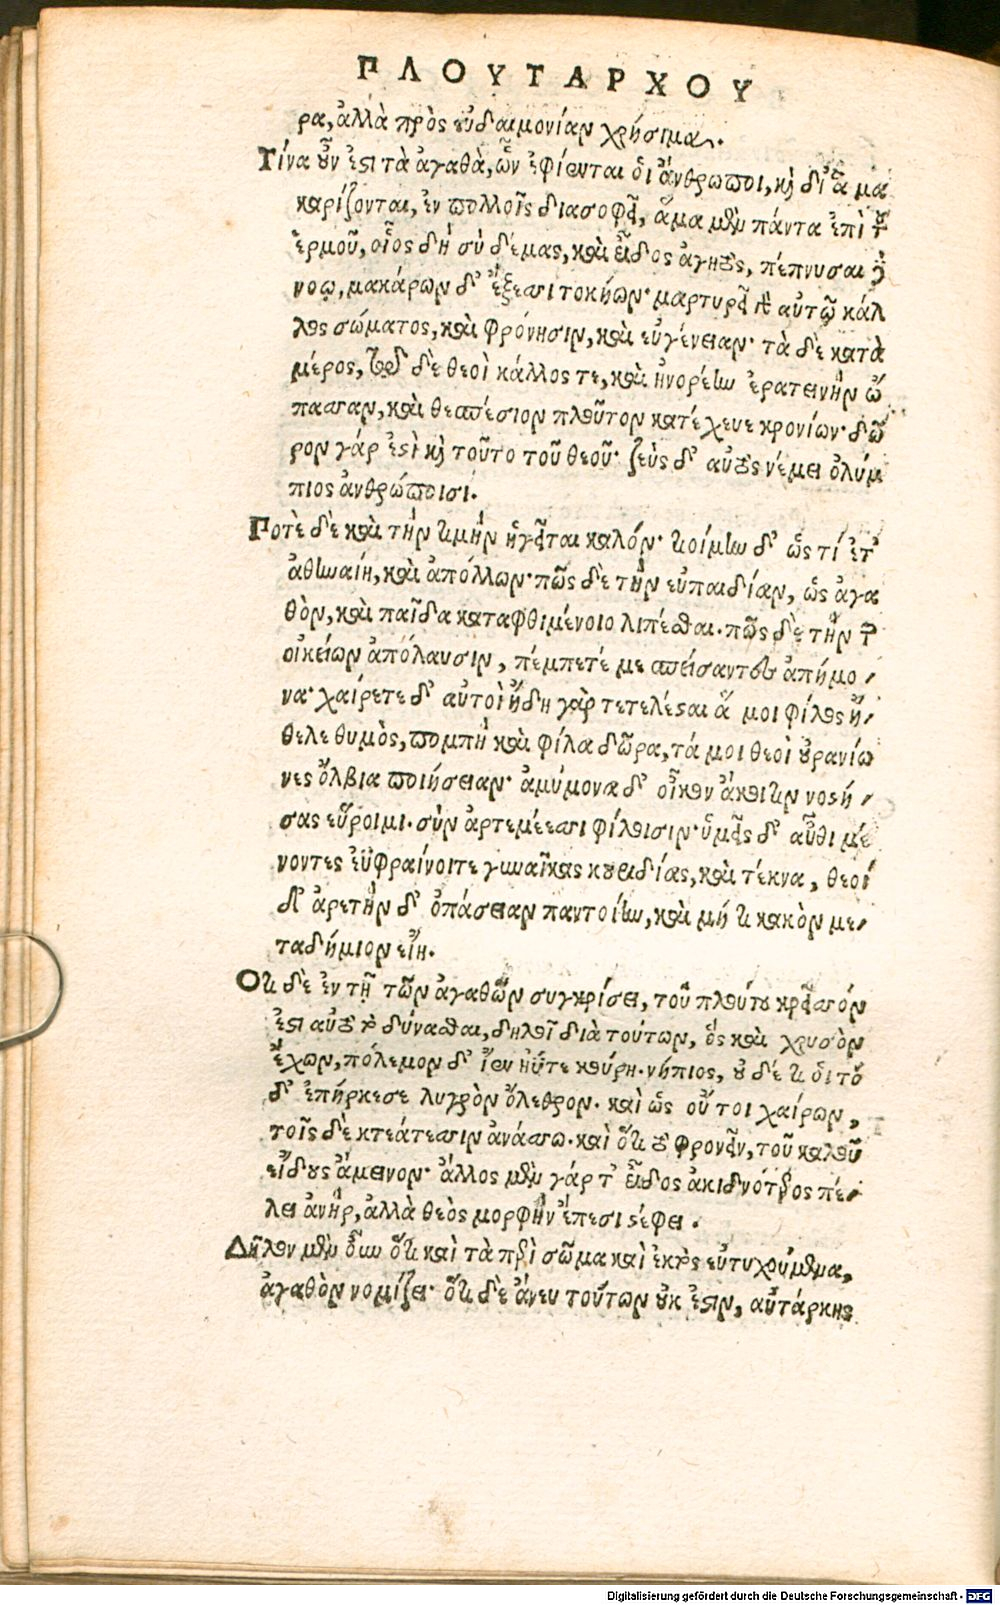 ΠΛΟΥΤΑΡΧΟΥ
ρα, ἀλλὰ πρὸς εὐδαιμονίαν χρήσιμα.
Τίνα οὖν ἐστι τὰ ἀγαθὰ, ὧν ἐφίενται οἱ ἄνθρωποι, καὶ δι' ἃ μα
καρίζονται, ἐν πολλοῖς διασαφεῖ, ἅμα μὲν πάντα ἐπὶ τοῦ
ἑρμοῦ, οἷος δὴ σὺ δέμας, καὶ εἶδος ἀγητὸς, πέπνυσαι τε
νοῳ, μακάρων δ' ἔξεσσι τοκήων· μαρτυρεῖ γὰρ αὐτῷ κάλ
λος σώματος, καὶ φρόνησιν, καὶ εὐγένειαν· τὰ δὲ κατὰ
μέρος, τῷ δὲ θεοὶ κάλλος τε, καὶ ἠνορέην ἐρατεινὴν ὤ
πασσαν, καὶ θεσπέσιον πλοῦτον κατέχευε κρονίων· δῶ
ρον γάρ ἐστὶ καὶ τοῦτο τοῦ θεοῦ· ζεὺς δ' αὐτὸς νέμει ὀλύμ
πιος ἀνθρώποισι.
Ποτὲ δὲ καὶ τὴν τιμὴν ἡγεῖται καλόν· τιοίμην δ' ὡς τί ετ'
ἀθηναίη, καὶ ἀπόλλων· πῶς δὲ τὴν εὐπαιδίαν, ὡς ἀγα
θὸν, καὶ παῖδα καταφθιμένοιο λιπέσθαι. πῶς δὲ τὴν τῶν
οἰκείων ἀπόλαυσιν, πέμπετέ με σπείσαντες ἀπήμο
να· χαίρετε δ' αὐτοὶ ἤδη γὰρ τετελέσαι ἅ μοι φίλος ἤ
θελε θυμὸς, πομπὴ καὶ φίλα δῶρα, τά μοι θεοὶ οὐρανίω
νες ὄλβια ποιήσειαν· ἀμύμονα δ' οἶκοι ἄκοιτιν νοστή
σας εὕροιμι. σὺν ἀρτεμέεσσι φίλοισιν· ὑμεῖς δ' αὖθι μέ
νοντες ἐϋφραίνοιτε γυναῖκας κουριδίας, καὶ τέκνα, θεοί
δ' ἀρετὴν δ' ὀπάσειαν παντοίην, καὶ μή τι κακὸν με
ταδήμιον εἴη.
Ὅτι δὲ ἐν τῇ τῶν ἀγαθῶν συγκρίσει, τοῦ πλούτου κρεῖσσόν
ἐστι αὐτὸ τὸ δύνασθαι, δηλοῖ διὰ τούτων, ὅς καὶ χρυσὸν
ἔχων, πόλεμον δ' ἴεν ἠΰτε κούρη. νήπιος, οὐδέ τι οἱ τό
δ' ἐπήρκεσε λυγρὸν ὄλεθρον. καὶ ὡς οὔ τοι χαίρων,
τοῖς δὲ κτεάτεσσιν ἀνάσσω. καὶ ὅτι τὸ φρονεῖν, τοῦ καλοῦ
εἴδους ἄμεινον· ἄλλος μὲν γάρ τ' εἶδος ἀκιδνότερος πέ
λει ἀνὴρ, ἀλλὰ θεὸς μορφὴν ἔπεσι στέφει.
Δῆλον μὲν οὖν ὅτι καὶ τὰ περὶ σῶμα καὶ ἐκτὸς εὐτυχούμενα,
ἀγαθὸν νομίζει· ὅτι δὲ ἄνευ τούτων οὐκ ἔστιν, αὐτάρκης
Digitalisierung gefördert durch die Deutsche Forschungsgemeinschaft - DFG